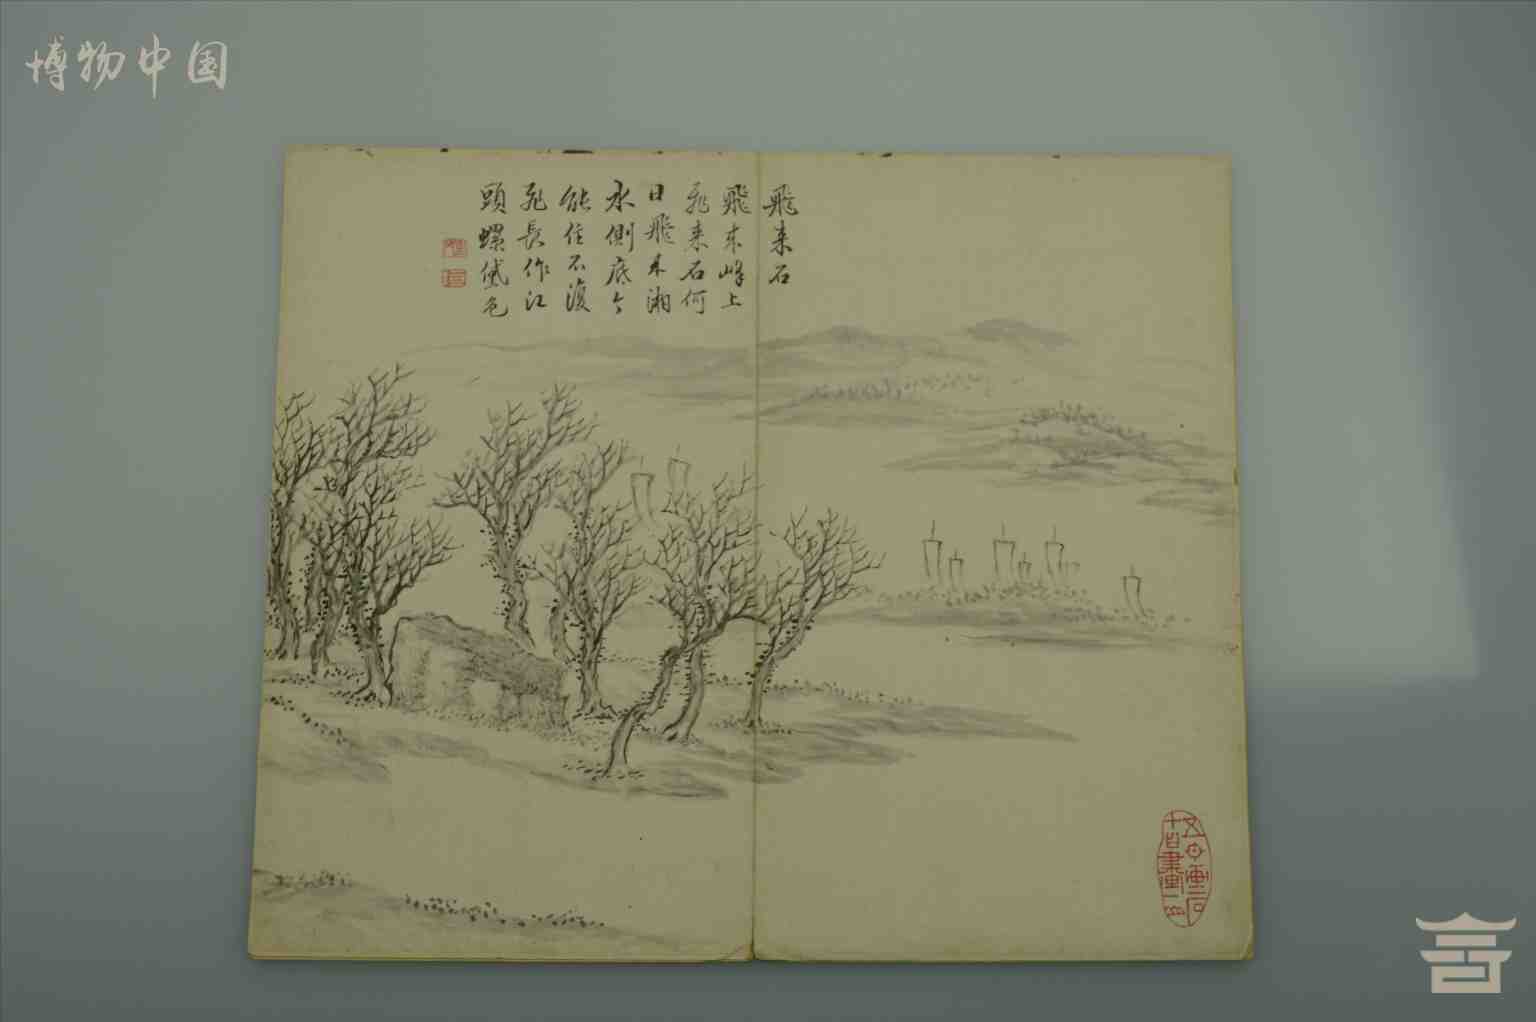 博物中国
飛来石
飛来峰上
飛来石何
日飛来湘
水側底今
能住不復
飛長作江
頭螺黛色